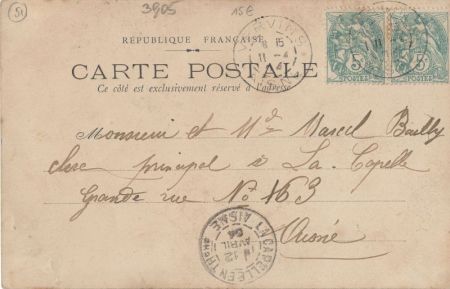 51
3905
15E
RÉPUBLIQUE FRANÇAISE
CARTE POSTALE
Ce côté est exclusivement réservé à l'adresse
VERVINS
6 15
11 - 4
04
5c 5c
POSTES POSTES
Monsieur et Mde Marcel Bailly
clerc principal à La Capelle
Grande rue No 163
Aisne
LA CAPELLE-EN-THIERACHE
AISNE
12
AVRIL
04